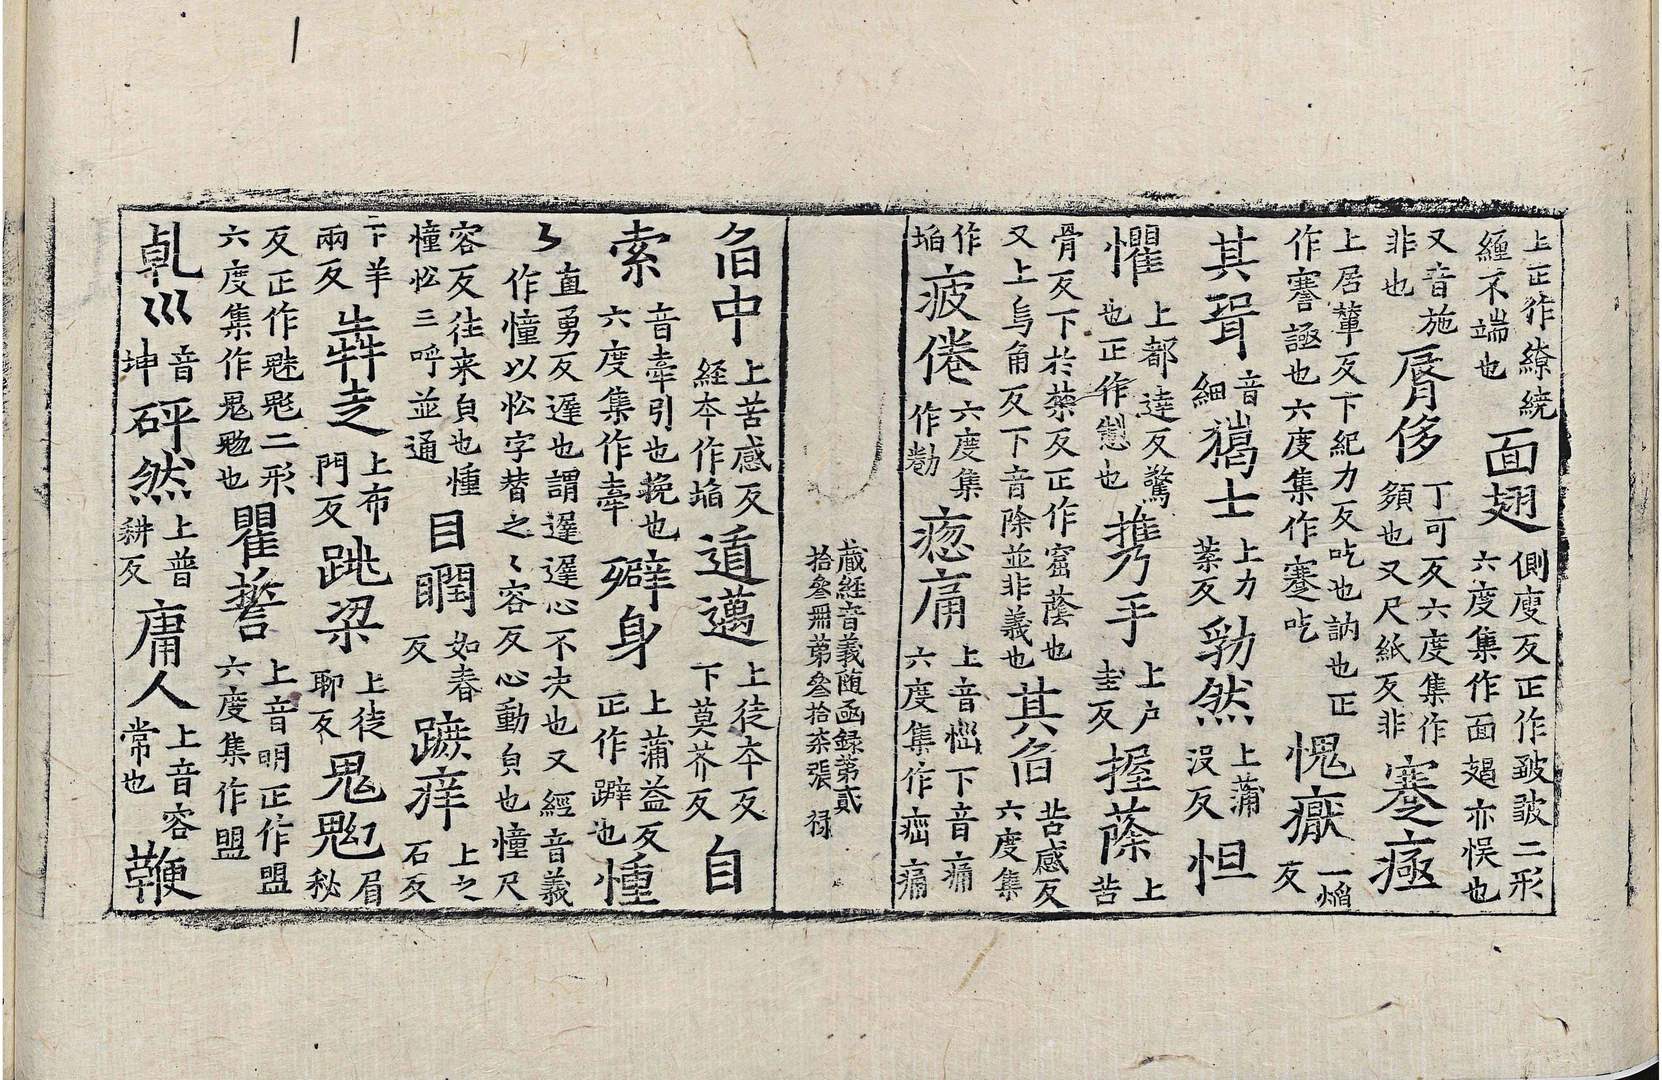 上正作繚繞纏不端也面翅側廋反正作皺皱二形六度集作面䫘亦悮也
又音施非也脣侈丁可反六度集作頟也又尺紙反非蹇極
上居輦反下紀力反吃也訥也正作謇諲也六度集作蹇吃愧癥一焰反
其聟音細猲士上力葉反勃然上蒲没反怛
懼上都達反驚也正作㣿也携手上户圭反握蔭上苦
骨反下扵禁反正作窟蔭也又上烏角反下音除並非義也其臽苦感反六度集
作埳疲倦六度集作勌㥿痛上音㥿下音痛六度集作痼痛
蔵経音義随函録第貳拾叄冊第叄拾柒張 禄
臽中上苦感反経夲作埳道邁上徒夲反下莫芥反自
索音牽引也挽也六度集作牽躃身上蒲益反正作躃也憧
〻直勇反遲也謂遲遲心不决也又經音義作憧以忪字替之〻容反心動皃也憧尺
容反往来皃也憧憧忪三呼並通目瞤如春反蹠痒上之石反
二下羊兩反犇走上布門反跳梁上徒聊反鬼魅上眉秘
反正作魅鬽二形六度集作鬼魅也瞿誓上音明正作盟六度集作盟
乹巛音坤砰然上普耕反庸人上音容常也鞭